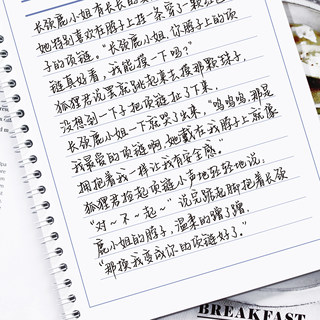 长颈鹿小姐有长长的
她特别喜欢在脖子上挂一条穿了颗
子的项链。“长颈鹿小姐,你脖子上的项
链真好看,我能摸一下吗?”
狐狸君说罢就跳起来去摸那颗珠子,
没想到一下子把项链扯了下来。
长颈鹿小姐一下就哭了出来。“呜呜呜,那是
我最爱的项链啊,她戴在我脖子上就像
拥抱着我一样让我有安全感。”
狐狸君捡起项链小声地轻轻地说:
“对~不~起~”说完踮起脚抱着长颈
鹿小姐的脖子,温柔的蹭了蹭。
“那换我变成你的项链好了。”
BREAKFAST